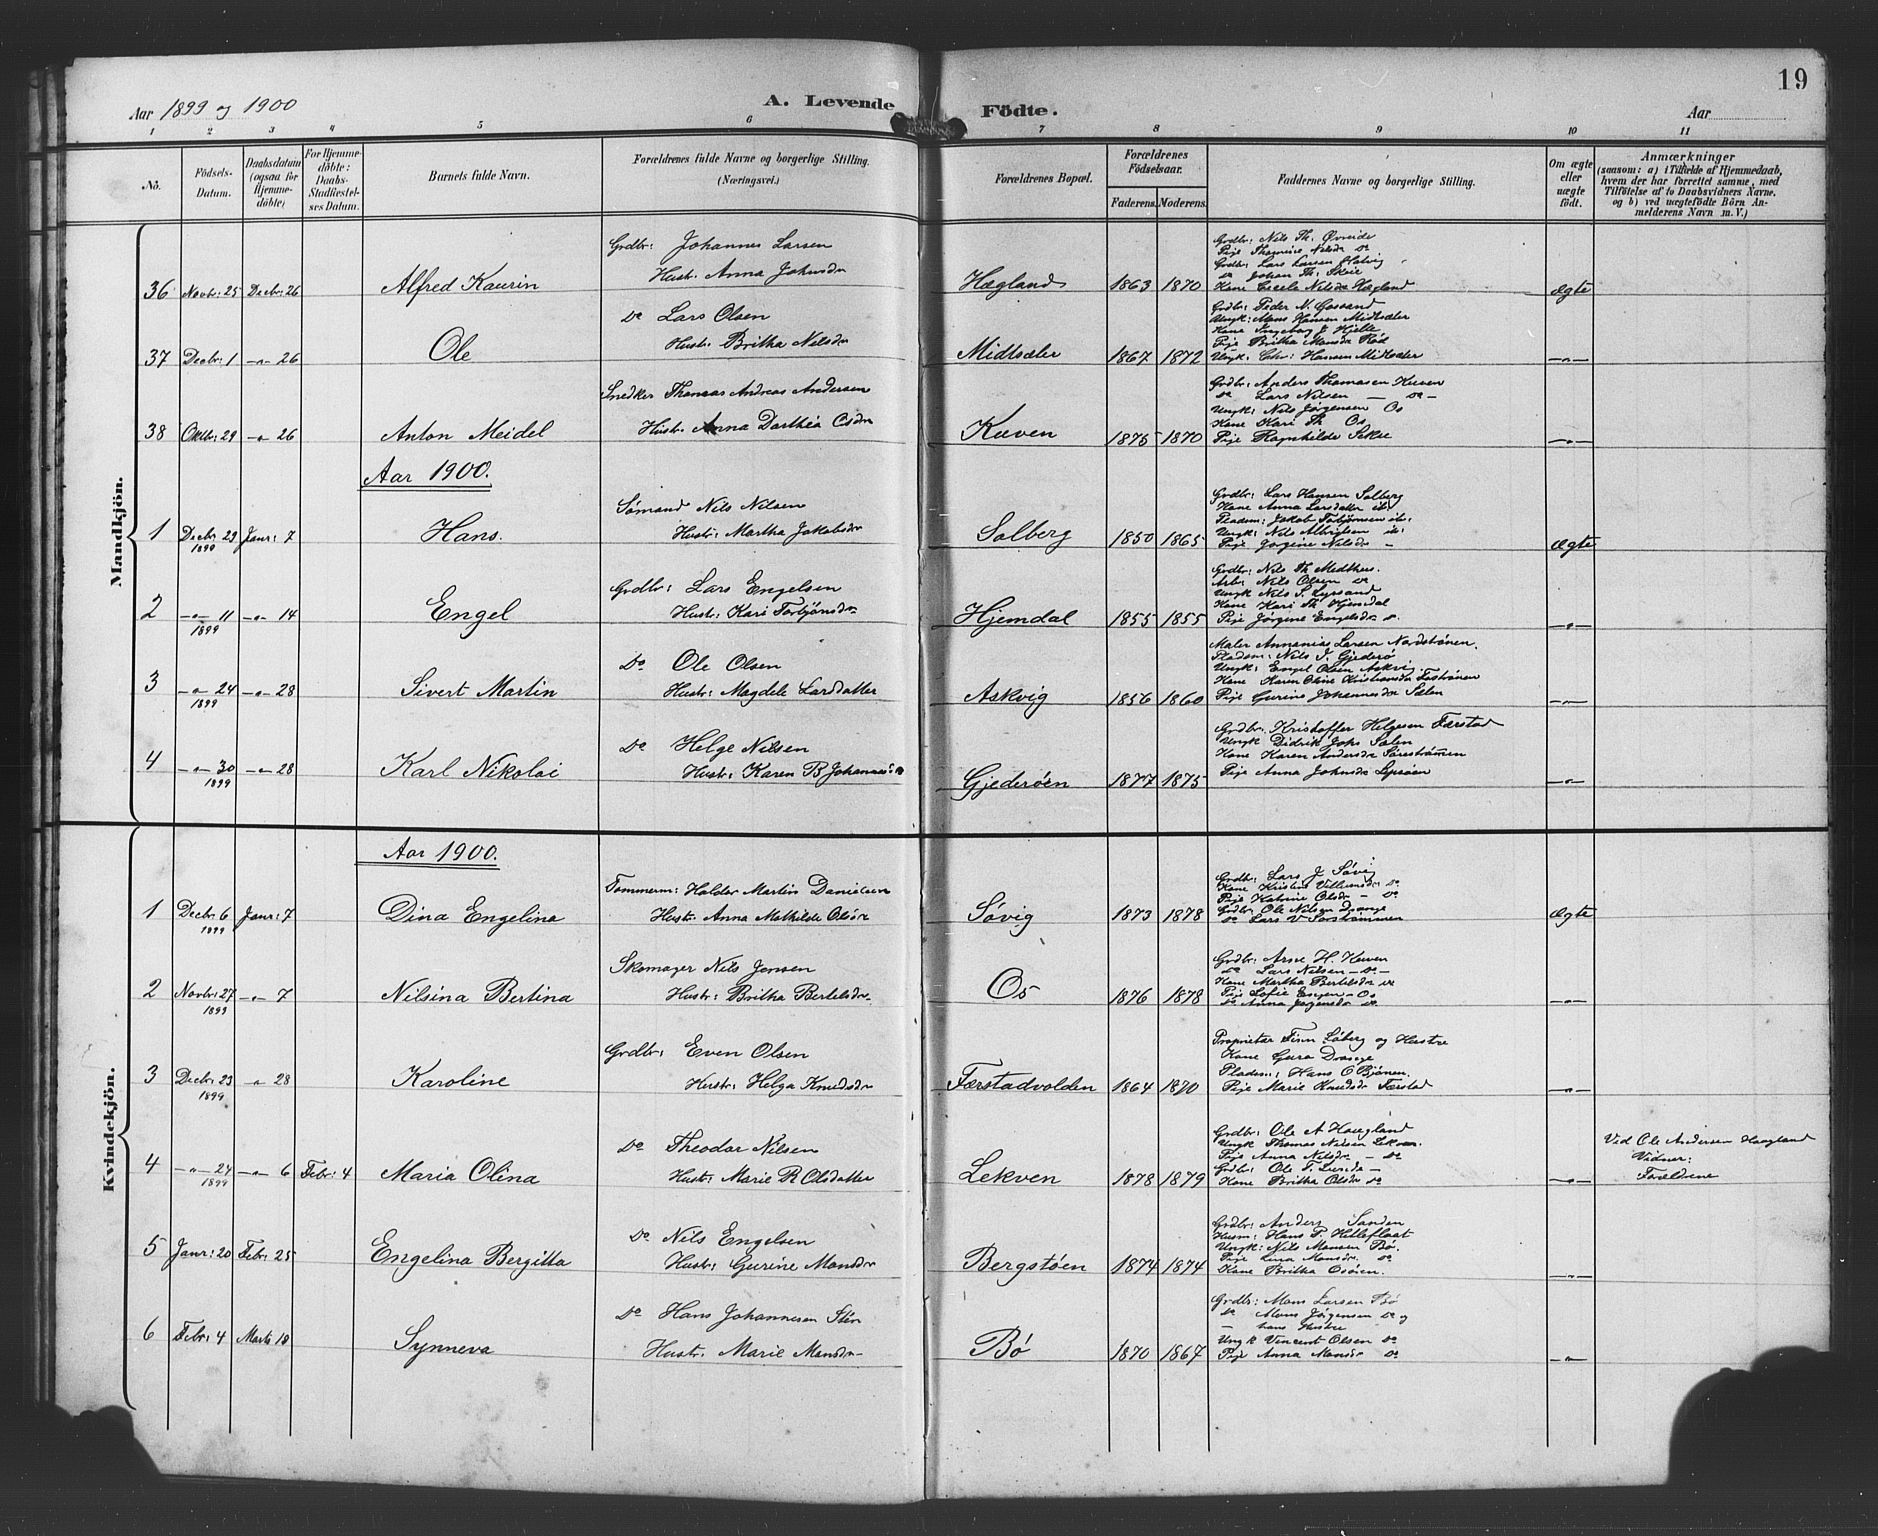 19
Aar 1899 og 1900
A. Levende Födte.
Aar
1 2 3 4 5 6 7 8 9 10 11
No.
Födsels-Datum.
Daabsdatum (ogsaa for Hjemme-döbte)
For Hjemme-döbte: Daabs-Stadfæstel-ses Datum.
Barnets fulde Navn.
Forældrenes fulde Navne og borgerlige Stilling. (Næringsvei.)
Forældrenes Bopæl.
Forældrenes Födselsaar.
Faderens. Moderens.
Faddernes Navne og borgerlige Stilling.
Om ægte eller uægte födt.
Anmærkninger
(saasom: a) i Tilfælde af Hjemmedaab, hvem der har forrettet samme, med Tilföielse af to Daabsvidners Navne. og b) ved uægtefödte Börn Anmelderens Navn m. V.)
Mandkjön.
36 Novbr: 25 Decbr: 26 Alfred Kaurin
Grdbr: Johannes Larsen
Hustr: Anna Johnsdr
Hægland 1863 1870
Grdbr: Nils Th. Øvreide
Pige Thomine Nilsdr do
Grdbr: Lars Larsen Hatvig
do Johan Th. Skeie
Kone Cecele Nilsdr Hægland
ægte
37 Decbr: 1 -"- 26 Ole
Do Lars Olsen
Hustr: Britha Nilsdr
Midtsæter 1867 1872
Grdbr: Peder N. Gaasand
Ungk: Mons Hansen Midtsæter
Kone Ingeborg J Hjelle
Pige Britha Monsdr Rød
Ungk: Chr: Hansen Midtsæter
-"-
38 Oktbr: 29 -"- 26 Anton Meidel
Snedker Thomas Andreas Andersen
Hustr: Anna Dorthea Osdr
Kuven 1875 1870
Grdbr: Anders Thomasen Kuven
do Lars Nilsen - do -
Ungk: Nils Jørgensen Os
Kone Kari Th Os
Pige Ragnhilde Sekse
-"-
Aar 1900.
1 Decbr 29 1899 Janr: 7 Hans.
Sømand Nils Nilsen
Hustr: Martha Jakobsdr
Solberg 1850 1865
Grdbr: Lars Hansen Solberg
Kone Anna Larsdatter ib:
Pladsm: Jakob Torbjørnsen ib:
Ungk: Nils Albrigtsen ib:
Pige Jørgine Nilsdr -
ægte
2 -"- 11 1899 -"- 14 Engel
Grdbr: Lars Engelsen
Hustr: Kari Torbjørnsdr
Hjemdal 1855 1855
Grdbr: Nils Th Midthus.
Arb: Nils Olsen do
Ungk Nils S. Lysand
Kone Kari Th Hjemdal
Pige Jørgine Engelsdr do.
-"-
3 -"- 24 1899 -"- 28 Sivert Martin
Do Ole Olsen
Hustr: Magdele Larsdatter
Askvig 1856 1860
Maler Annanias Larsen Nordstrønen.
Pladsm: Nils J. Gjederø
Ungk: Engel Olsen Askvig.
Kone Karen Oline Kristiansdr
Pige Gurine Johannesdr Sælen
-"-
4 -"- 30 1899 -"- 28 Karl Nikolai
Do Helge Nilsen
Hustr: Karen B Johannesdr
Gjederøen 1877 1875
Grdbr: Kristoffer Helgesen Færstad
Ungk Didrik Johs Sælen
Kone Karen Andersdr Sørestrømmen
Pige Anna Johnsdr Lysøen
-"-
Kvindekjön.
Aar 1900.
1 Decbr 6 1899 Janr: 7 Dina Engelina
Tømmerm: Haldor Martin Danielsen
Hustr: Anna Mathilde Olsdr
Søvig 1873 1878
Grdbr: Lars J Søvig
Kone Kristine Villumsdr do
Pige Katrine Olsdr - do
Grdbr: Ole Nilsen Drange
do Lars V Sørstrømmen
Ægte
2 Novbr: 27 1899 -"- 7 Nilsina Bertina
Skomager Nils Jensen
Hustr: Britha Bertelsdr
Os 1876 1878
Grdbr: Arne H. Kuven
do Lars Nilsen - do -
Kone Martha Bertelsdr do
Pige Sofie Engen - Os
do Anna Jørgensdr do
-"-
3 Decbr: 23 1899 -"- 28 Karoline
Grdbr: Even Olsen
Hustr: Helga Knudsdr
Færstadvolden 1864 1870
Proprietær Finn Løberg og Hustru
Kone Guro Drange
Pladsm: Hans O Bjønen.
Pige Marie Knudsdr Færstad
-"-
4 -"- 24 1899 -"- 6 Febr: 4 Maria Olina
Do Theodor Nilsen
Hustr: Marie R Olsdatter
Lekven 1878 1879
Grdbr: Ole A Haugland
Ungk Thomas Nilsen Lekven.
Pige Anna Nilsdr - do
Grdbr: Ole T. Lunde -
Kone Britha Olsdr do
-"-
Vid Ole Andersen Haugland
Vidner:
Forældrene
5 Janr: 20 Febr: 25 Engelina Bergitta
Do Nils Engelsen
Hustr: Gurine Monsdr
Bergstøen 1874 1874
Grdbr: Anders Sanden
Husm: Hans P. Hillefloat
Ungk: Nils Monsen Bø.
Pige Lina Monsdr do
Kone Britha Osøien.
-"-
6 Febr: 4 Marts 18 Synneva
Do Hans Johannesen Stør
Hustr: Marie Monsdr
Bø 1870 1867
Grdbr: Mons Larsen Bø
do Mons Jørgensen do og
- hans Hustru
Ungk Vincent Olsen do
Pige Anna Monsdr do
-"-